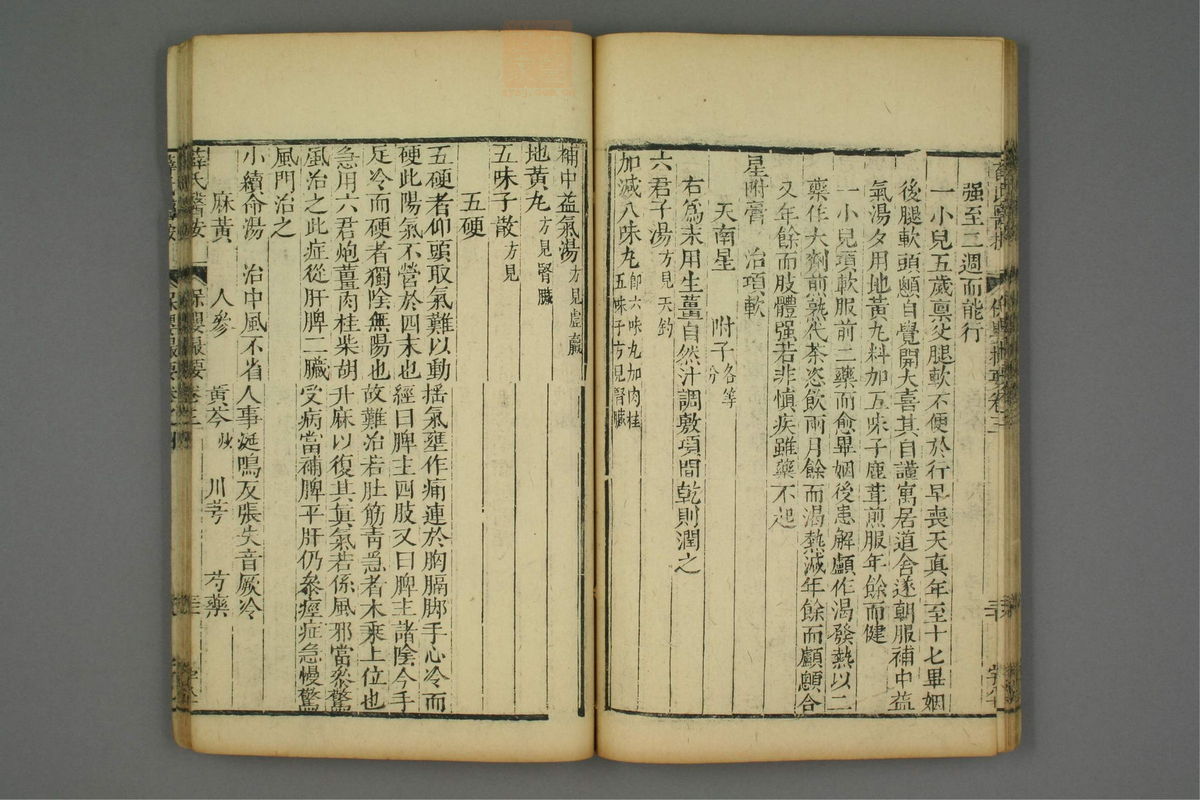 强至二週而能行
一小兒五歲禀父腿軟不便於行早喪天真年至十七畢姻
後腿軟頭顱自覺開大喜其自謹寓居道舍遂朝服補中益
氣湯夕用地黃丸料加五味子鹿茸煎服年餘而健
一小兒項軟服前二藥而愈畢姻後患解顱作渴發熱以二
藥作大劑煎熟代茶恣飲兩月餘而渴熱減年餘而顱顖合
又年餘而肢體强若非慎疾雖藥不起
星附膏 治項軟
天南星 附子各等分
右為末用生薑自然汁調敷項間乾則潤之
六君子湯方見天釣
加減八味丸即六味丸加肉桂五味子方見腎臟
補中益氣湯方見虛羸
地黃丸方見腎臟
五味子散方見
五硬
五硬者仰頭取氣難以動搖氣壅作痛連於胸膈脚手心冷而
硬此陽氣不營於四末也經曰脾主四肢又曰脾主諸陰今手
足冷而硬者獨陰無陽也故難治若肚筋青急者木乘土位也
急用六君炮薑肉桂柴胡升麻以復其真氣若係風邪當參驚
風治之此症從肝脾二臟受病當補脾平肝仍參痙症急慢驚
風門治之
小續命湯 治中風不省人事涎鳴反張失音厥冷
麻黃 人參 黃芩 川芎 芍藥
薛氏醫按 保嬰撮要